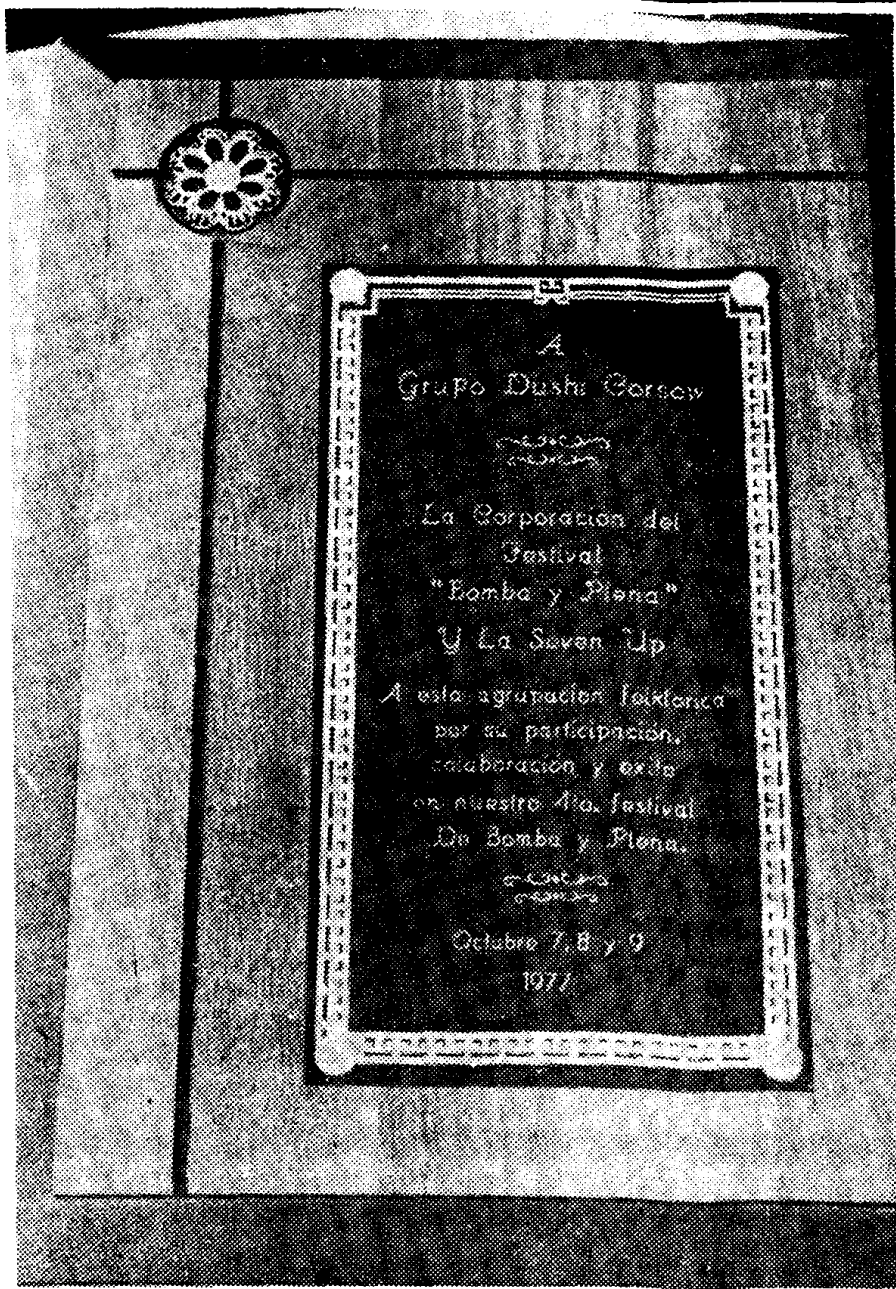 A
Grupo Dushi Corsow
La Corporación del
Festival
"Bomba y Plena"
Y La Seven Up
A esta agrupación folklorica
por su participación,
colaboración y exito
en nuestro 4to. festival
De Bomba y Plena.
Octubre 7, 8 y 9
1977